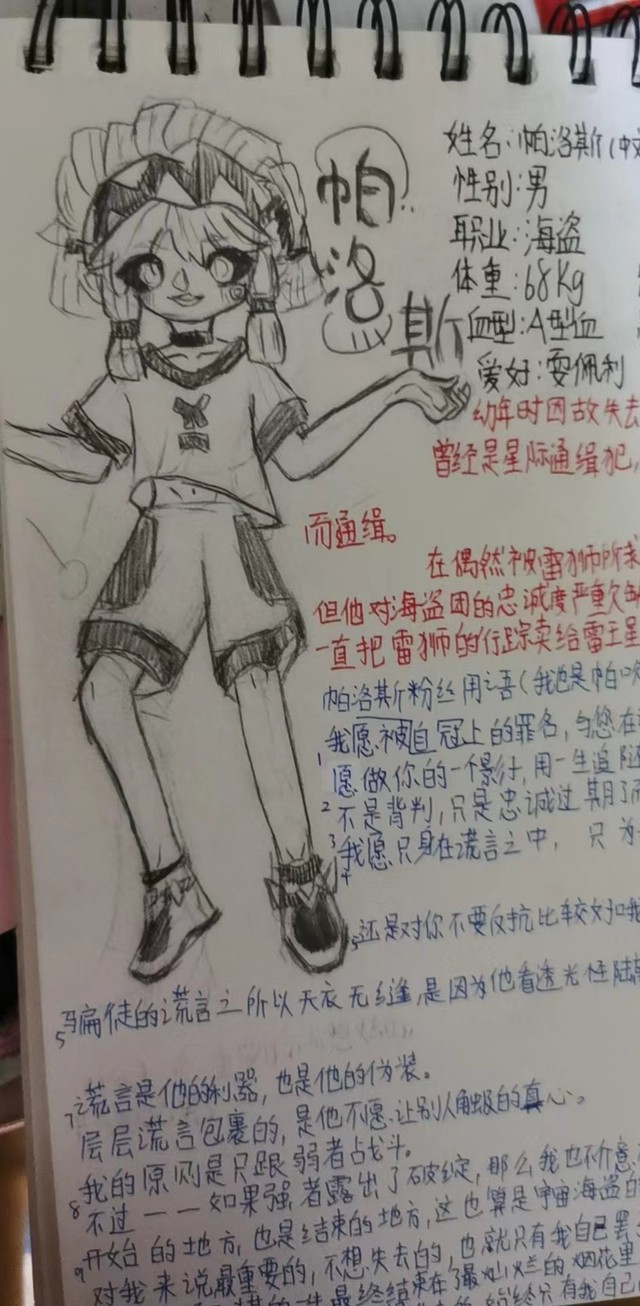 帕洛斯
姓名:帕洛斯(中文
性别:男
职业:海盗
体重:68Kg
血型:A型血
爱好:耍佩利
幼年时因故失去
曾经是星际通缉犯,
而通缉。
在偶然被雷狮所救
但他对海盗团的忠诚度严重欠缺
一直把雷狮的行踪卖给雷王星
帕洛斯粉丝用语(我也是帕吹
1我愿被自冠上的罪名,与您在
愿做你的一个影子,用一生追随
2不是背判,只是忠诚过期了而
3我愿只身在谎言之中, 只为
4
5还是对你不要反抗比较好哦
5骗徒的谎言之所以天衣无缝,是因为他看透光怪陆离
7谎言是他的利器,也是他的伪装。
层层谎言包裹的,是他不愿让别人触及的真心。
8我的原则是只跟弱者战斗。
不过——如果强者露出了破绽,那么我也不介意
9开始的地方,也是结束的地方,这也算是宇宙海盗的
对我来说最重要的,不想失去的,也就只有我自己罢
最终结束在了最灿烂的烟花里
始终只有我自己